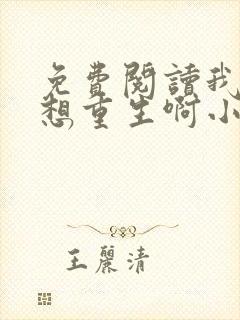 免費閱讀我
想重生啊小
王麗清